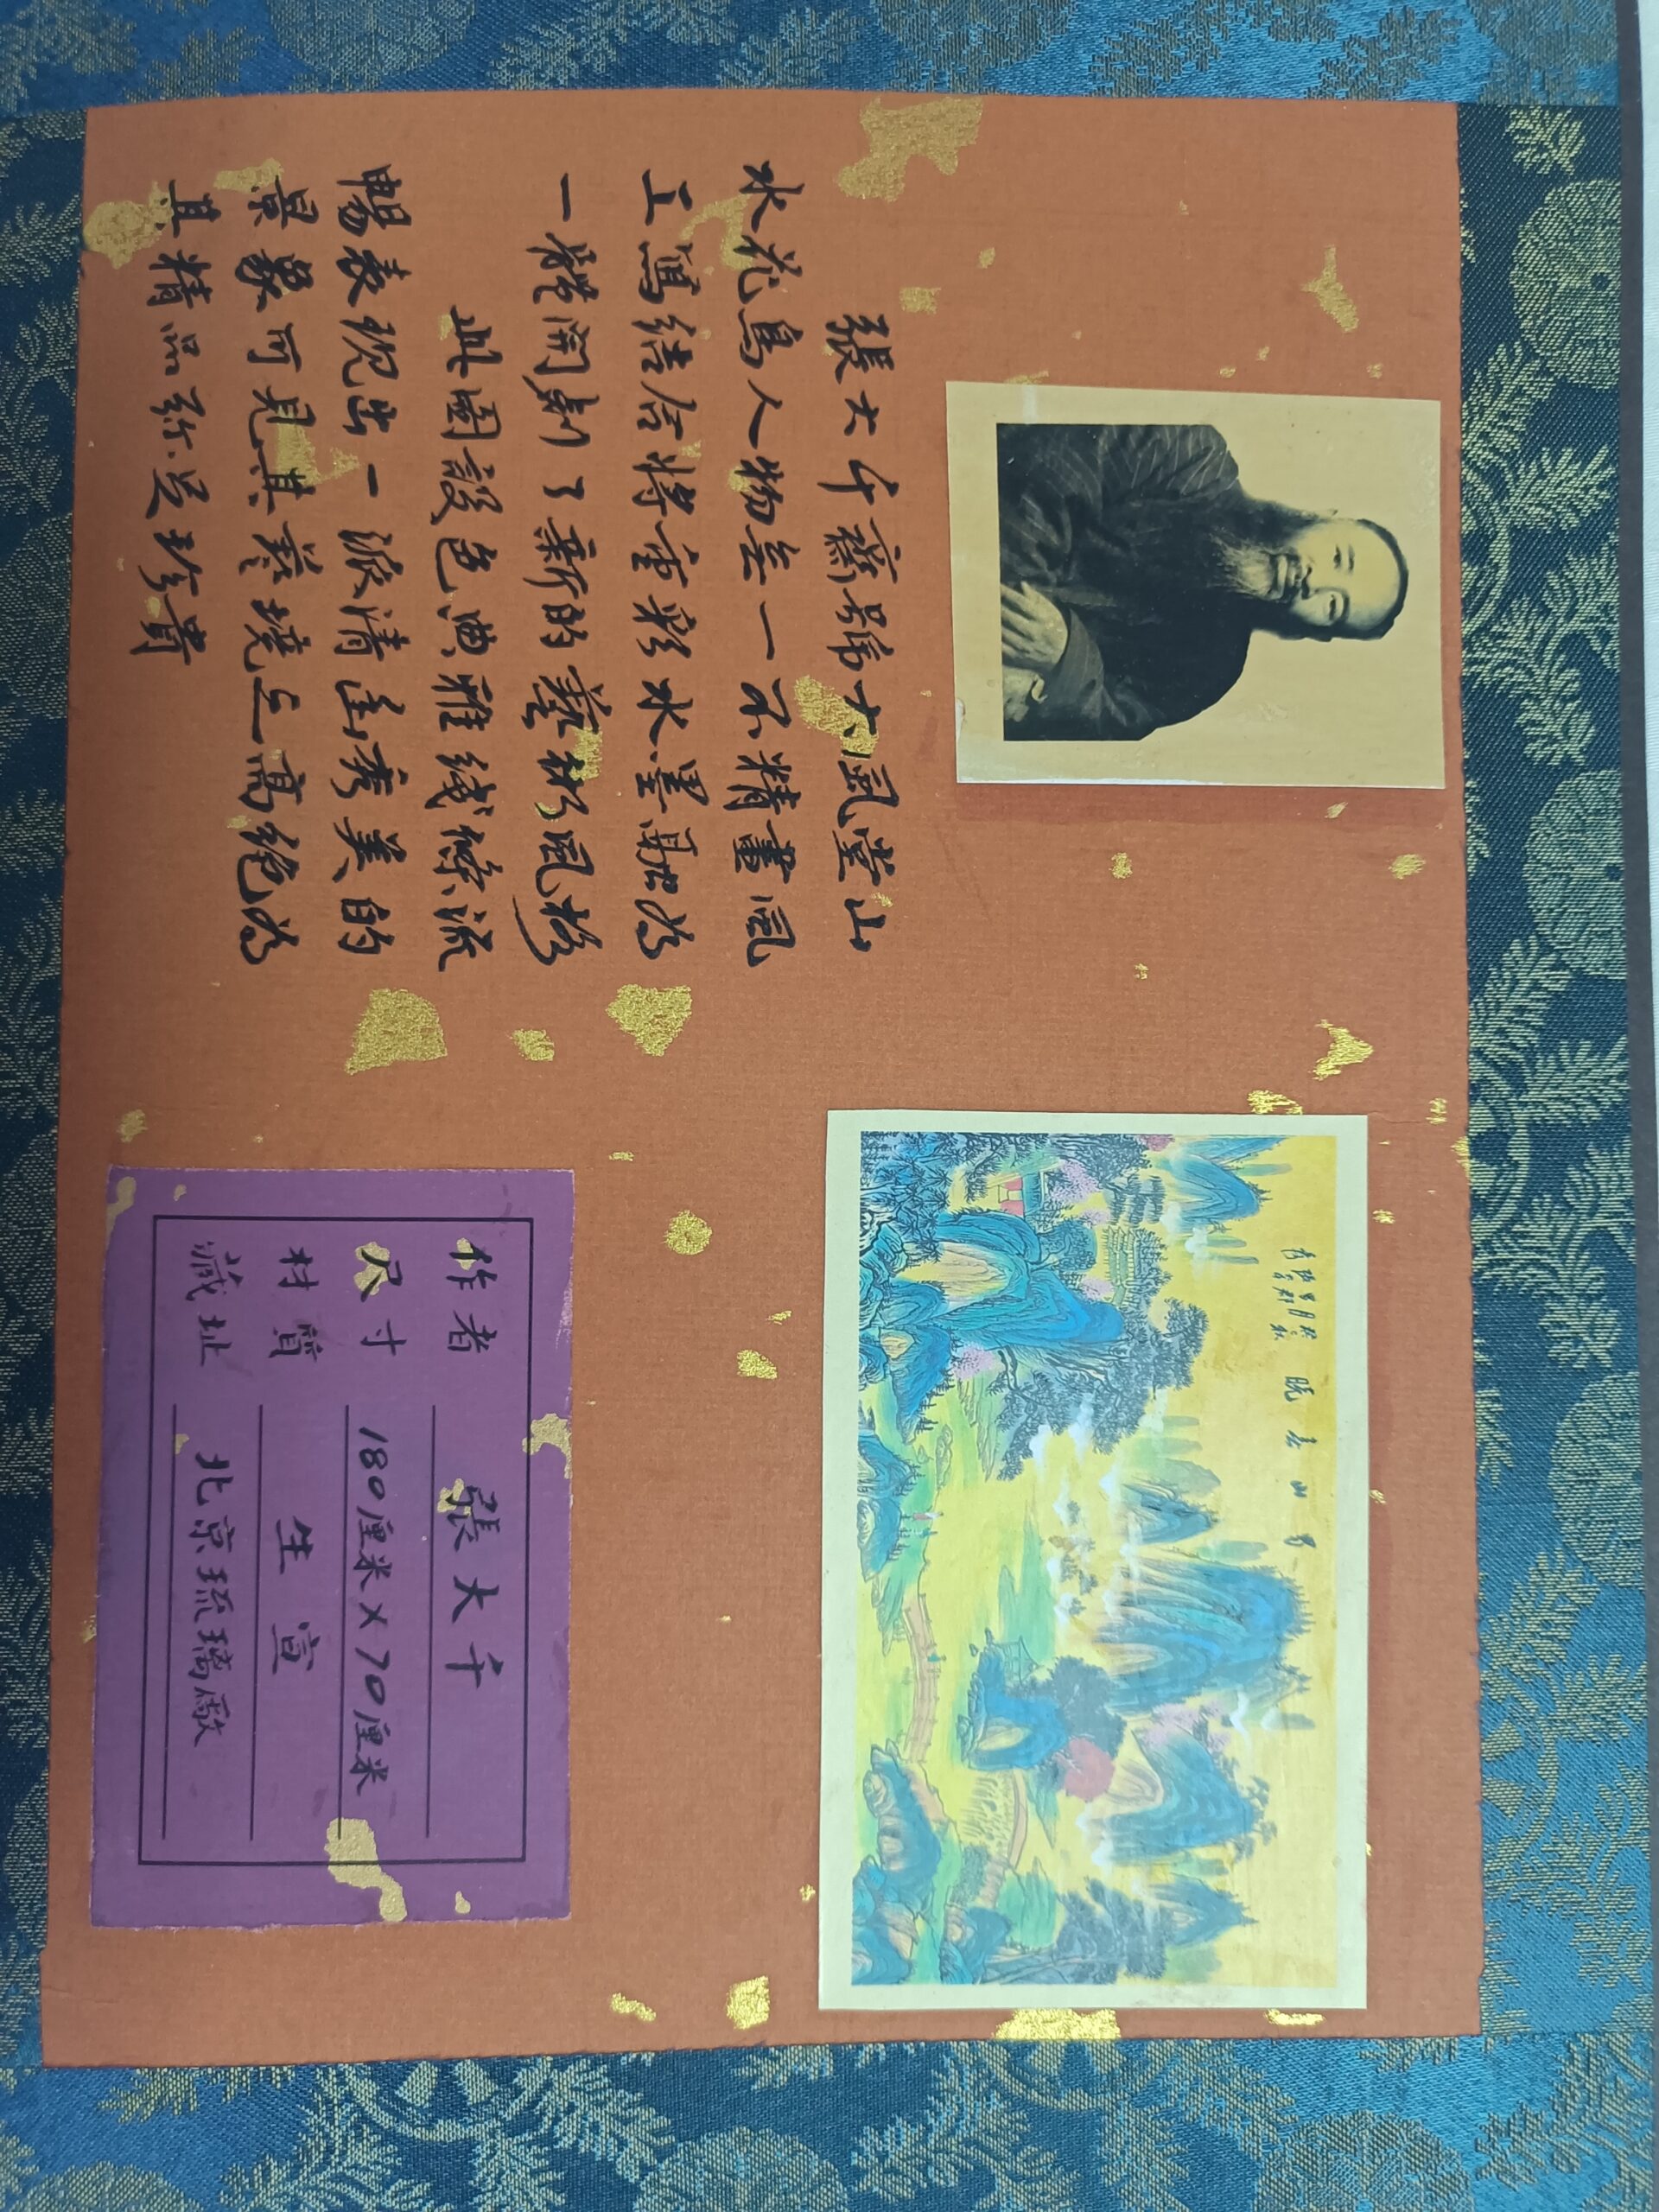 張大千齋號大風堂山
水花鳥人物無一不精畫風
工寫結合將重彩水墨融為
一體開創了新的藝術風格
此圖設色典雅綫條流
暢表現出一派清幽秀美的
景象可見其藝境之高絕為
其精品彌足珍貴
曉春山
作者 張大千
尺寸 180厘米×70厘米
材質 生宣
藏址 北京琉璃廠